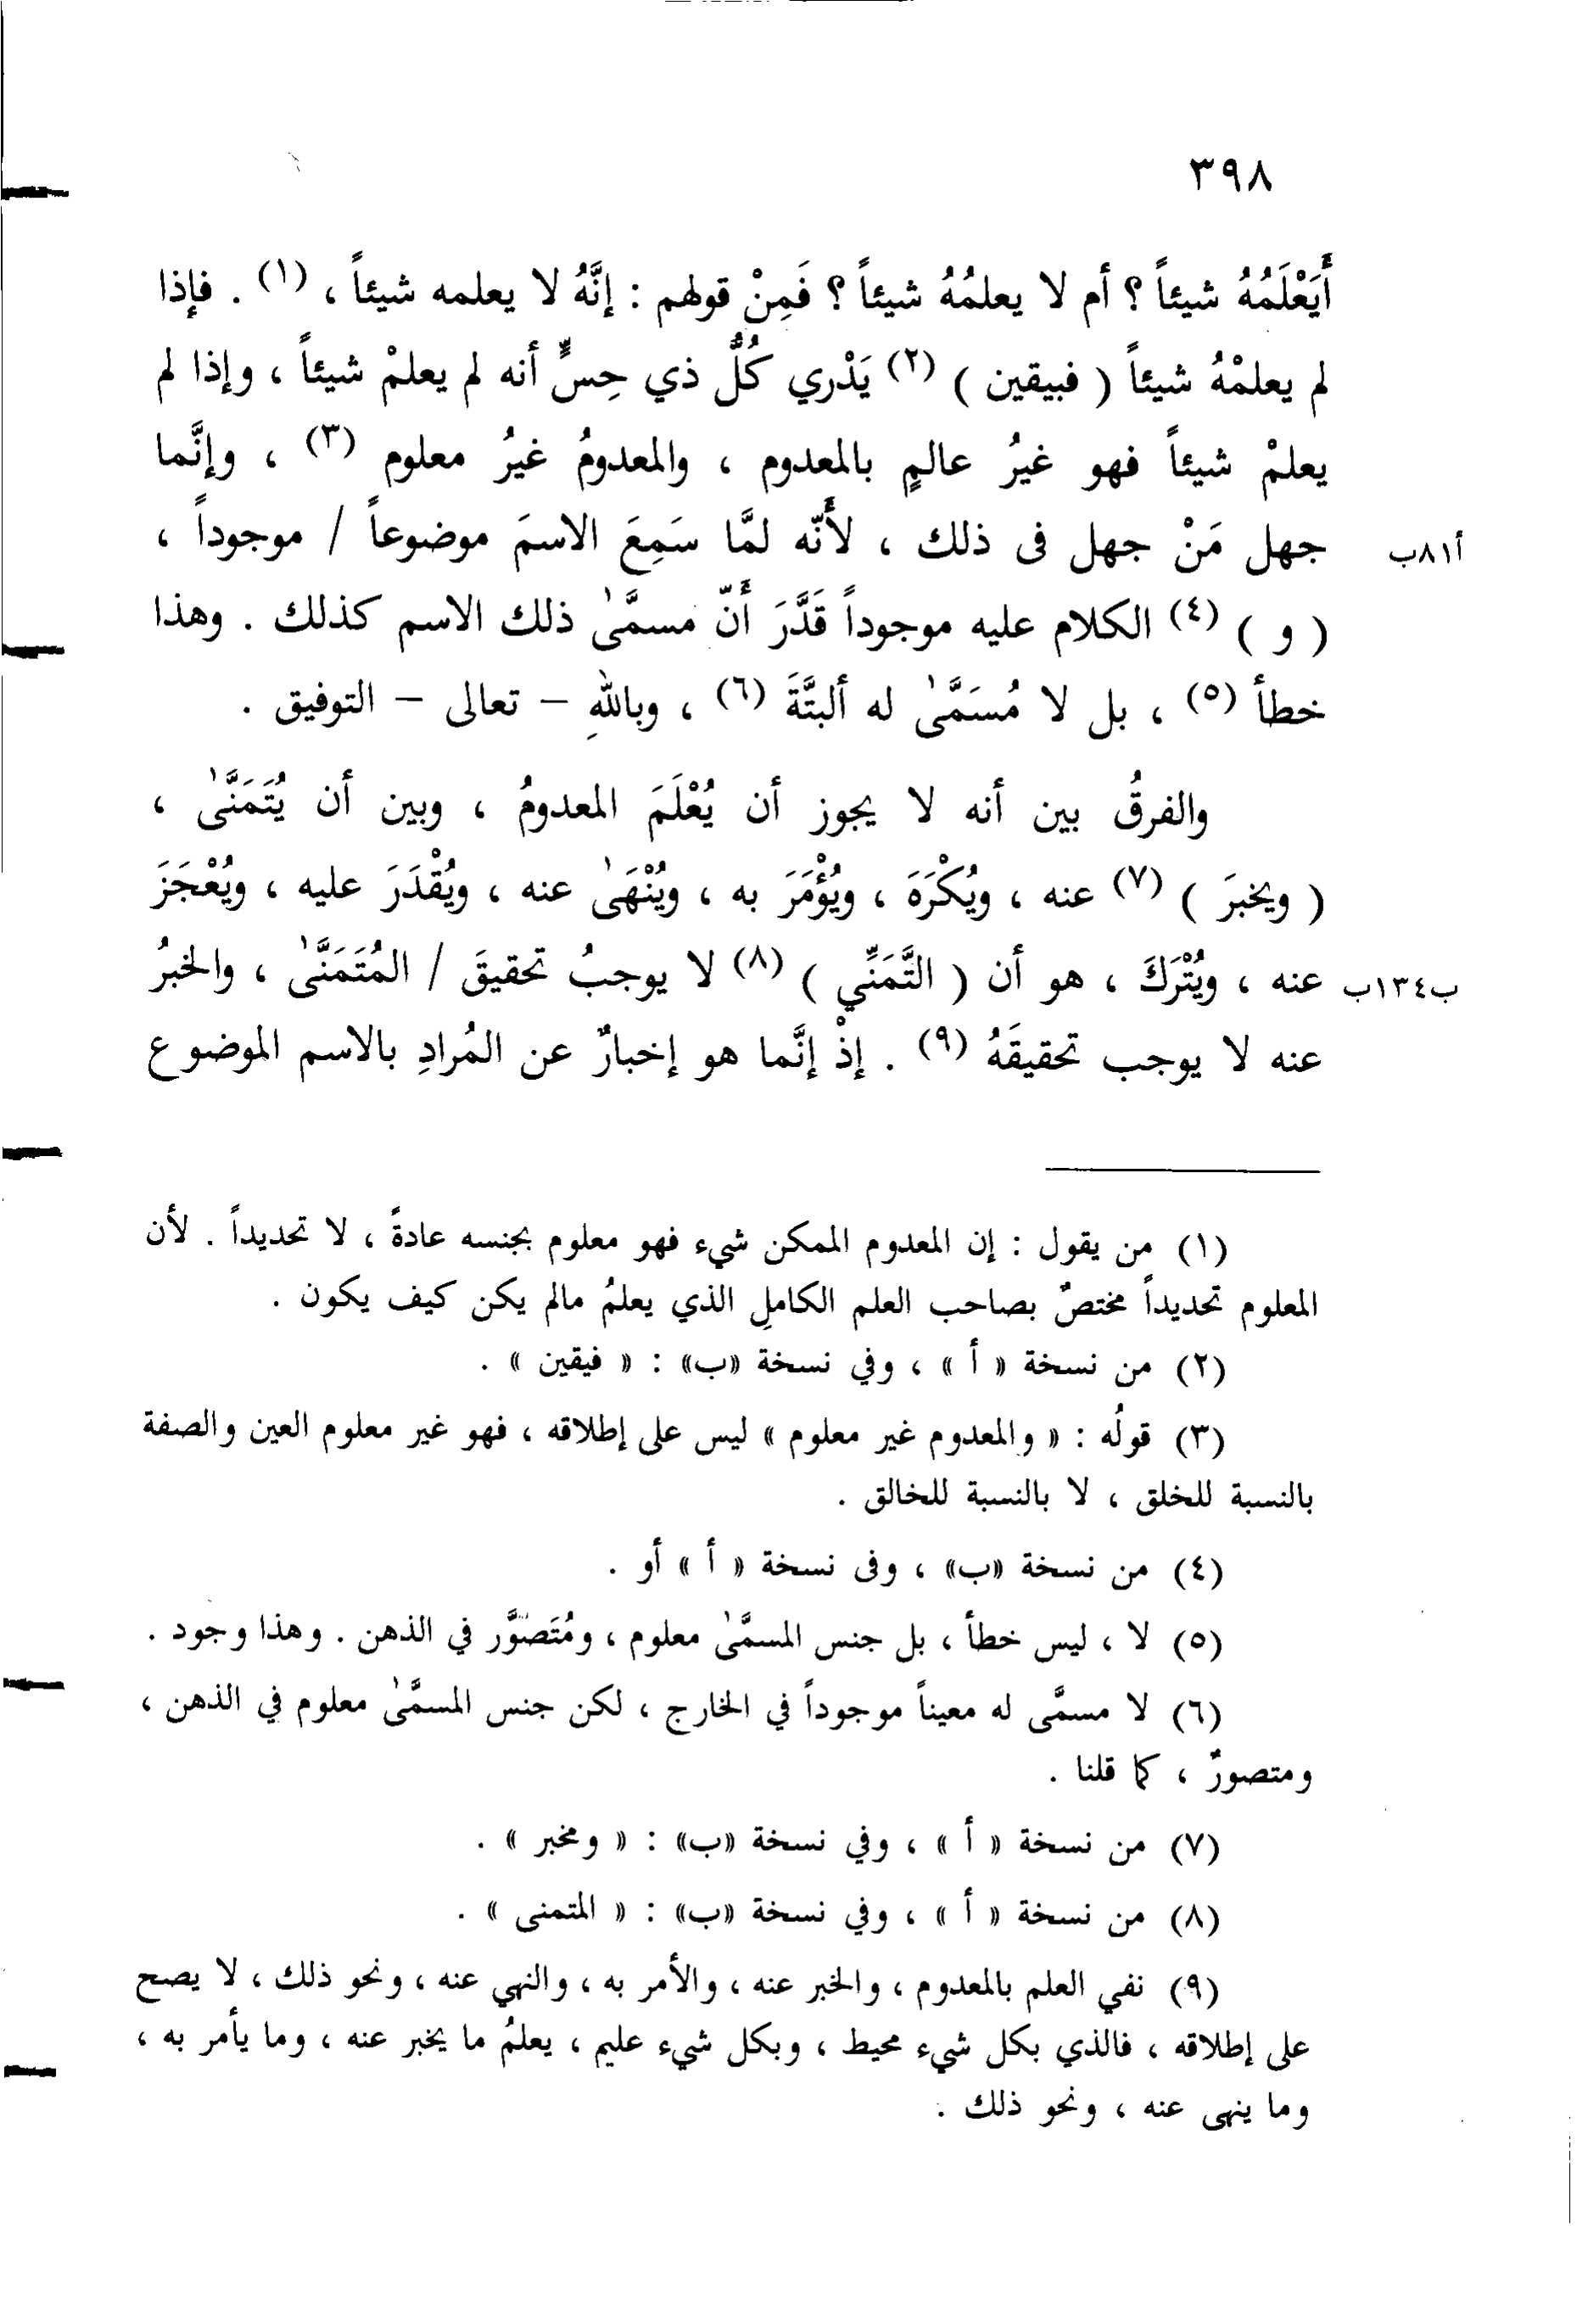 ٣٩٨
أَيَعْلَمُهُ شيئاً ؟ أم لا يعلمُهُ شيئاً ؟ فَمِنْ قولهم : إنَّهُ لا يعلمه شيئاً ، (١) . فإذا
لم يعلمْهُ شيئاً ( فبيقين ) (٢) يَدْري كُلُّ ذي حِسٍّ أنه لم يعلمْ شيئاً ، وإذا لم
يعلمْ شيئاً فهو غيرُ عالمٍ بالمعدوم ، والمعدومُ غيرُ معلوم (٣) ، وإنَّما
جهل مَنْ جهل فى ذلك ، لأَنّه لمَّا سَمِعَ الاسمَ موضوعاً / موجوداً ،
أ٨١ب
( و ) (٤) الكلام عليه موجوداً قَدَّرَ أَنّ مسمَّىٰ ذلك الاسم كذلك . وهذا
خطأ (٥) ، بل لا مُسَمَّىٰ له ألبتَّةَ (٦) ، وباللهِ – تعالى – التوفيق .
والفرقُ بين أنه لا يجوز أن يُعْلَمَ المعدومُ ، وبين أن يُتَمَنَّىٰ ،
( ويخبرَ ) (٧) عنه ، ويُكْرَهَ ، ويُؤْمَرَ به ، ويُنْهَىٰ عنه ، ويُقْدَرَ عليه ، ويُعْجَزَ
عنه ، ويُتْرَكَ ، هو أن ( التَّمَنِّي ) (٨) لا يوجبُ تحقيقَ / المُتَمَنَّىٰ ، والخبرُ
ب١٣٤ب
عنه لا يوجب تحقيقَهُ (٩) . إذْ إنَّما هو إخبارٌ عن المُرادِ بالاسم الموضوع
(١) من يقول : إن المعدوم الممكن شيء فهو معلوم بجنسه عادةً ، لا تحديداً . لأن
المعلوم تحديداً مختصٌ بصاحب العلم الكاملِ الذي يعلمُ مالم يكن كيف يكون .
(٢) من نسخة « أ » ، وفي نسخة «ب» : « فيقين » .
(٣) قولُه : « والمعدوم غير معلوم » ليس على إطلاقه ، فهو غير معلوم العين والصفة
بالنسبة للخلق ، لا بالنسبة للخالق .
(٤) من نسخة «ب» ، وفى نسخة « أ » أو .
(٥) لا ، ليس خطأ ، بل جنس المسمَّىٰ معلوم ، ومُتَصَوَّر في الذهن . وهذا وجود .
(٦) لا مسمَّى له معيناً موجوداً في الخارج ، لكن جنس المسمَّىٰ معلوم في الذهن ،
ومتصورٌ ، كما قلنا .
(٧) من نسخة « أ » ، وفي نسخة «ب» : « ومخبر » .
(٨) من نسخة « أ » ، وفي نسخة «ب» : « المتمنى » .
(٩) نفي العلم بالمعدوم ، والخبر عنه ، والأمر به ، والنهي عنه ، ونحو ذلك ، لا يصح
على إطلاقه ، فالذي بكل شيء محيط ، وبكل شيء عليم ، يعلمُ ما يخبر عنه ، وما يأمر به ،
وما ينهى عنه ، ونحو ذلك .